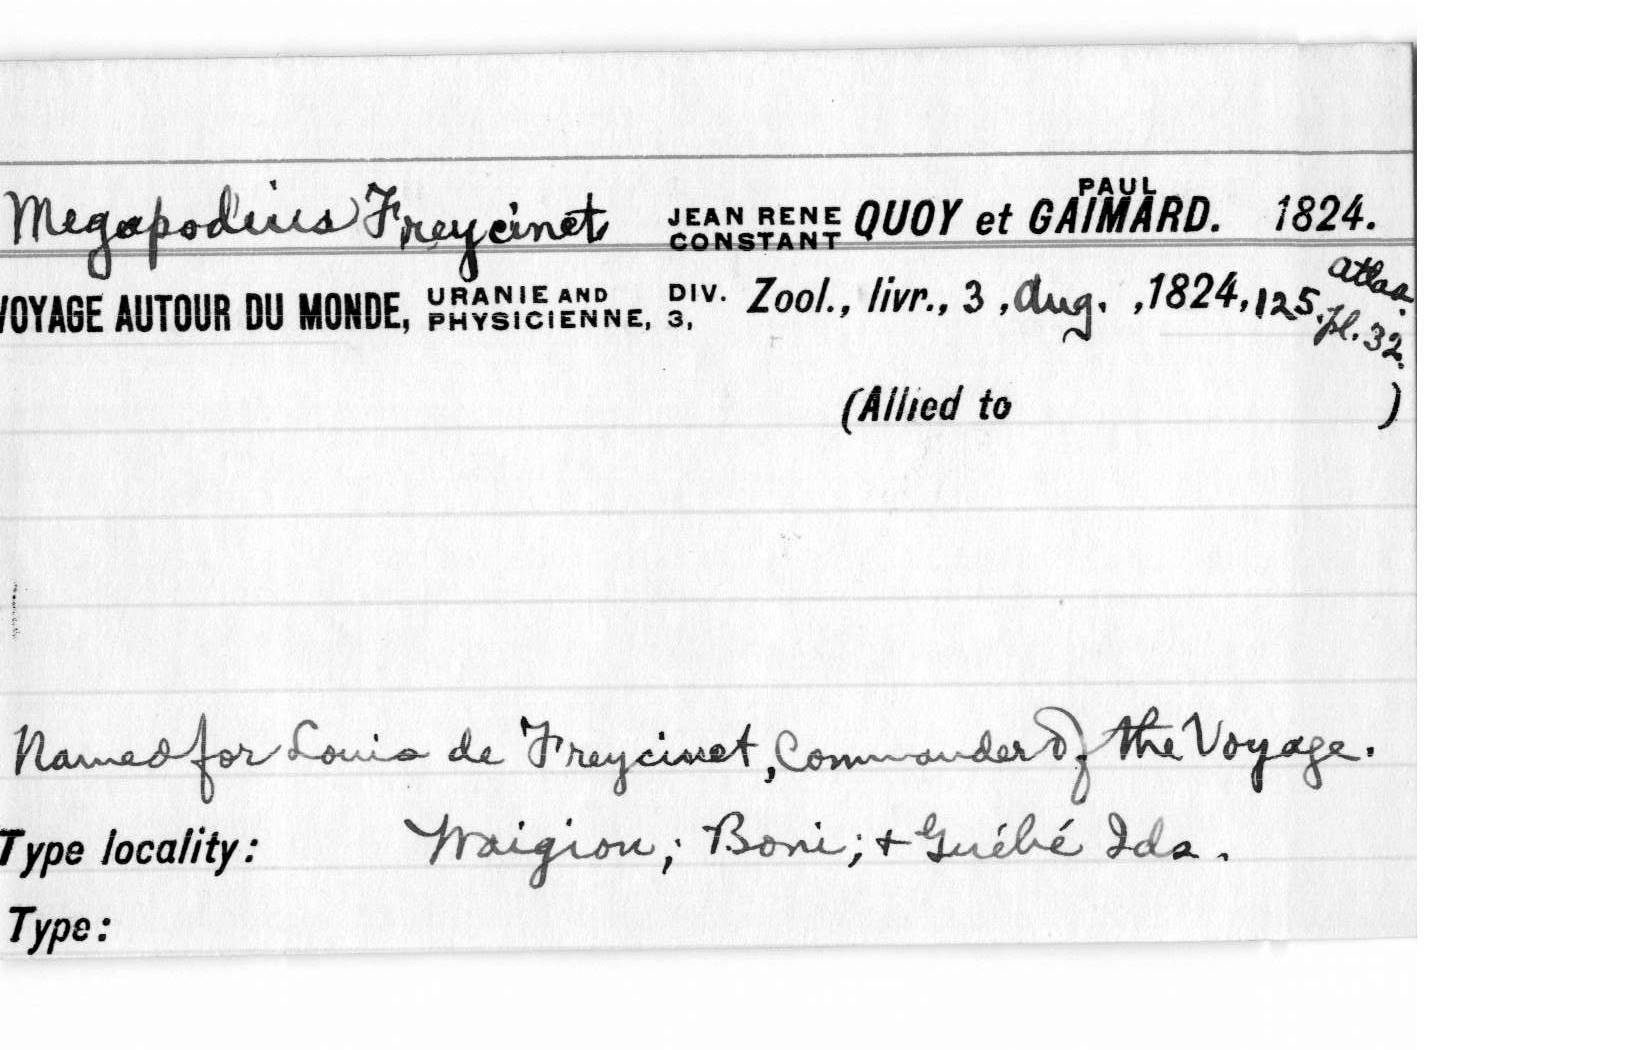 Megapodius Freycinet JEAN RENE CONSTANT QUOY et PAUL GAIMARD. 1824.
VOYAGE AUTOUR DU MONDE, URANIE AND PHYSICIENNE, DIV. 3, Zool., livr., 3, Aug., 1824, 125. atlas. pl. 32.
(Allied to )
Named for Louis de Freycinet, Commander of the Voyage.
Type locality: Waigiou; Boni; + Guébé Ids.
Type: